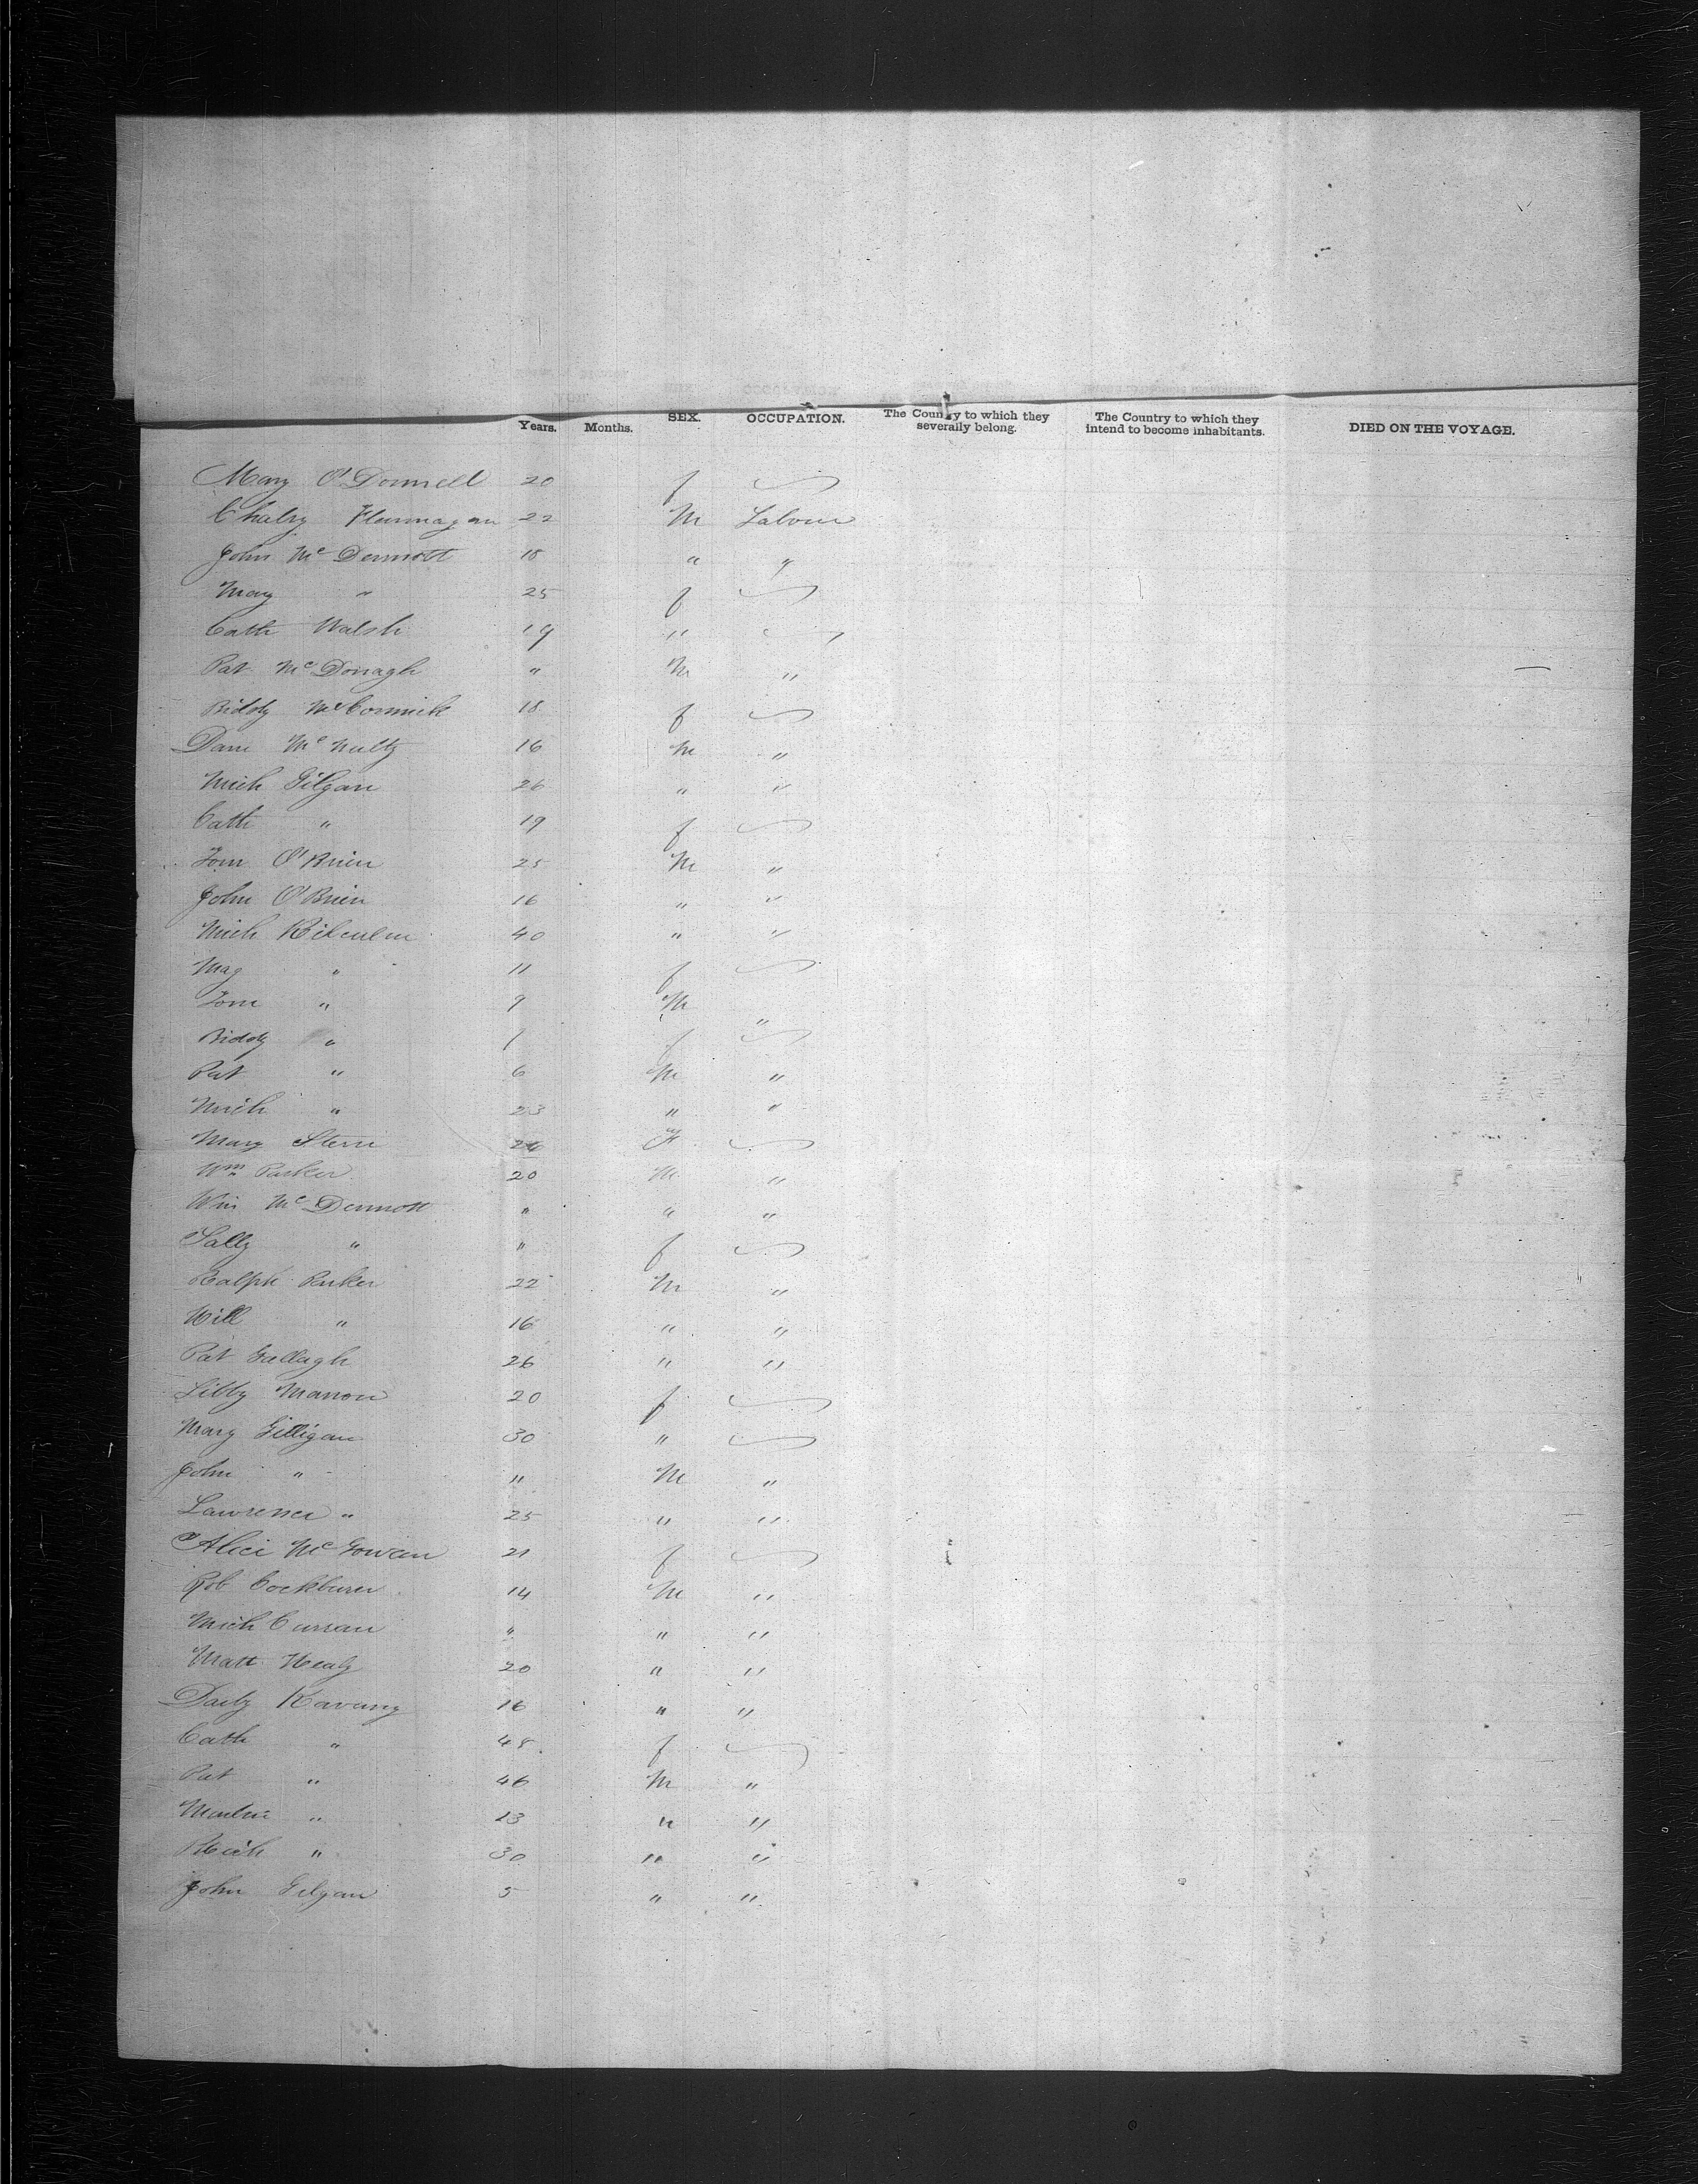 Years. Months. SEX. OCCUPATION. The Country to which they severally belong. The Country to which they intend to become inhabitants. DIED ON THE VOYAGE.
Mary O'Donnell 20 f
Flannagan 22 M Labour
John McDermott 18 " "
Mary " 25 f
Cath Walsh 19 "
Pat McDonagh " M "
Biddy McCormick 18 f
Dan McNulty 16 M "
Mich Gilgan 26 " "
Cath " 19 f
Tom O'Brien 25 M "
John O'Brien 16 " "
Mich 40 " "
Mag " 11 f
Tom " 9 M "
Biddy " f
Pat " 6 M "
Mich " 23 " "
Mary F
Wm Parker 20 M "
Wm McDermott " " "
Sally " " f
Ralph Parker 22 M "
Will " 16 " "
Pat Gallagh 26 " "
Libby Mannon 20 f
Mary Gilligan 30 "
John " " M "
Lawrence " 25 " "
Alice McGowan 21 f
Rob Cockburn 14 M "
Mich Curran " " "
Matt Healy 20 " "
Kavany 16 " "
Cath " 48 f
Pat " 46 M "
Martin " 13 " "
Mich " 30 " "
John Gilgan 5 " "